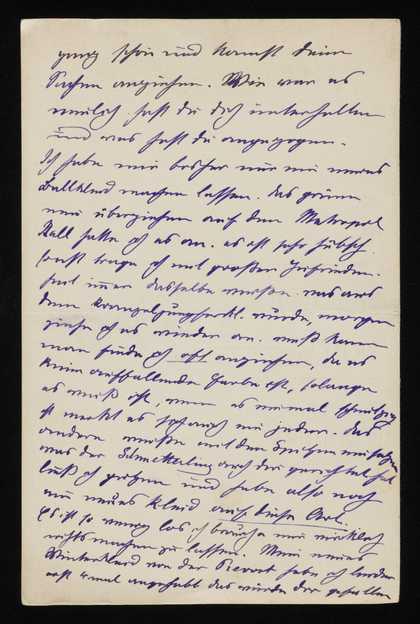 ganz schön und kannst deine
Sachen anziehen. Wie war es
neulich hast du dich unterhalten
und was hast du angezogen.
Ich habe mir bisher nur ein neues
Ballkleid machen lassen. das grüne
neu überziehen auf dem Metropol
Ball hatte ich es an. es ist sehr hübsch.
sonst trage ich mit großer Zufrieden-
heit immer dasselbe weiße. was aus
dem wurde, morgen
ziehe ich es wieder an. weiß kann
man finde ich oft anziehen, da es
keine auffallende Farbe ist, solange
es weiß ist, wenn es einmal schmutzig
ist merkt es sofort ein jeder. das
andere weiße mit den Spitzen
was der Schmetterling auch der
ließ ich und habe also noch
ein neues Kleid auf diese Art.
Es ist so wenig los ich brauche mir wirklich
nichts machen zu lassen. Mein neues
Winterkleid von der habe ich leider
erst 4mal angehabt das würde dir gefallen